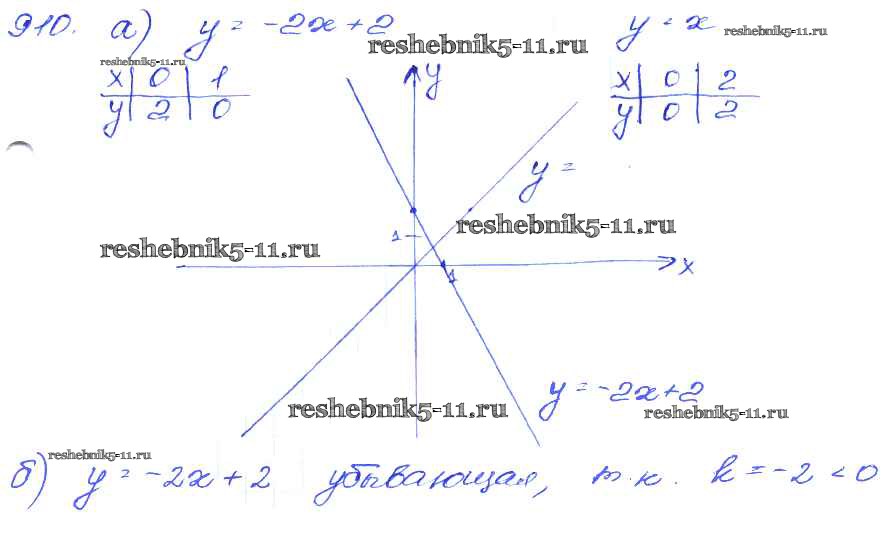 910. а) y = -2x + 2 y = x reshebnik5-11.ru
reshebnik5-11.ru
reshebnik5-11.ru
x 0 1
y 2 0
x 0 2
y 0 2
y
y =
reshebnik5-11.ru
1
reshebnik5-11.ru
x
1
y = -2x+2
reshebnik5-11.ru
reshebnik5-11.ru
reshebnik5-11.ru
б) y = -2x + 2 убывающая, т.к. k = -2 < 0